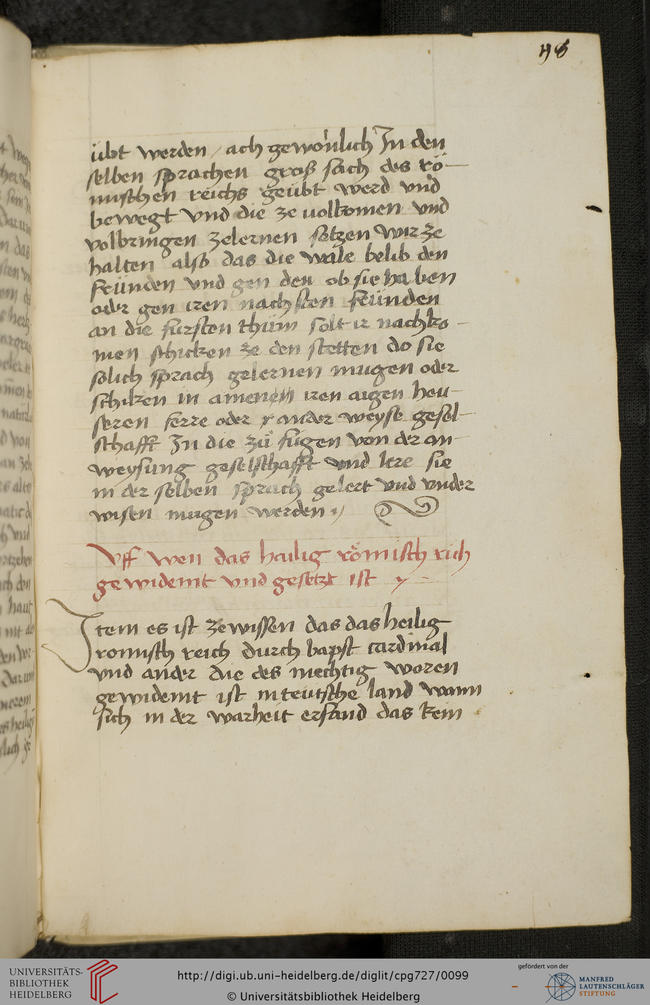 48
übt werden / ach gewönlich In den
selben sprachen groß sach des rö-
mischen reichs geübt werd und
bewegt vnd die ze uolkomen vnd
volbringen zelernen setzen wir ze
halten also das die wale belib den
freünden vnd gen den ob sie haben
oder gen iren nachsten freünden
an die fursten thům solt ir nachko-
men schicken ze den stetten do sie
solich sprach gelernen mugen oder
schiken in iren aigen heu-
seren ferre oder ander weyse gesel-
schafft In die zů fugen von der an-
weysung geselschafft vnd lere sie
in der selben sprach gelert vnd vnder
wisen mugen werden
Vff wen das hailig römisch rich
gewidemt vnd gesetzt ist
Item es ist ze wissen das das heilig
romisch reich durch bapst cardinal
vnd ander die des mechtig woren
gewidemt ist in teutsche land wann
sich in der warheit erfand das kein
UNIVERSITÄTS-
BIBLIOTHEK
HEIDELBERG
http://digi.ub.uni-heidelberg.de/diglit/cpg727/0099
© Universitätsbibliothek Heidelberg
gefördert von der
MANFRED
LAUTENSCHLÄGER
STIFTUNG